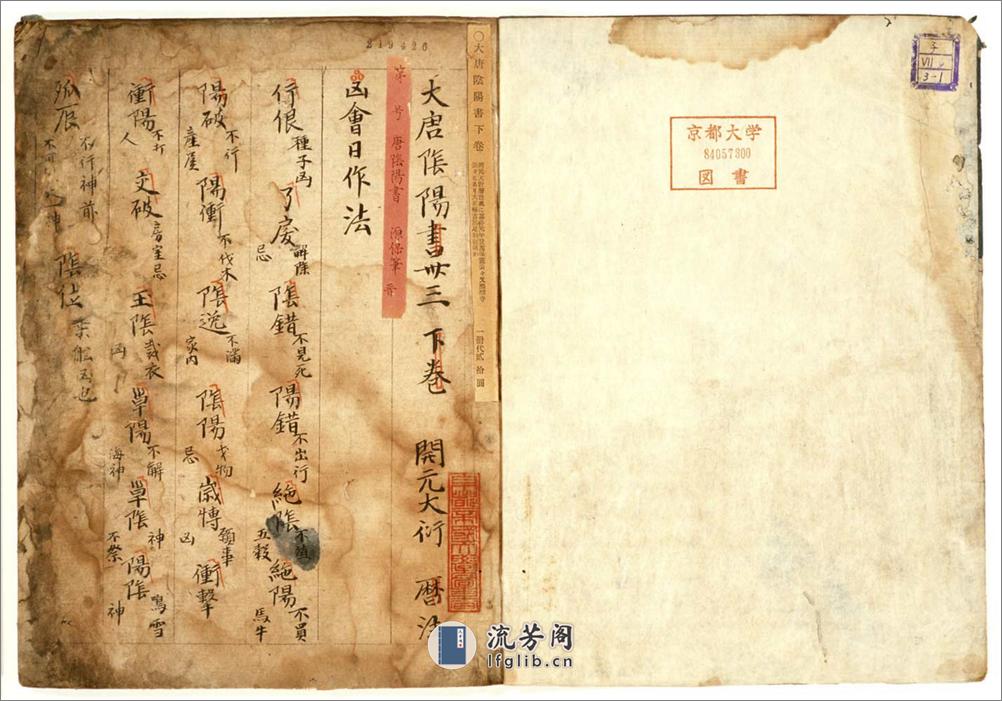 子
VII
3-1
京都大学
84057800
図書
〇大唐陰陽書下卷
一册代貳拾圓
219426
大唐陰陽書卅三下卷 開元大衍暦法
号 唐陰陽書 源保筆
凶會日作法
行佷 種子凶 了戾 解除忌 陰錯 不見死 陽錯 不出行 絶陰 五穀 絶陽 不買馬牛
陽破 不行產 陽衝 不伐木 陰逃 不滿家内 陰陽 忌 歲愽 凶 衝擊
衝陽 不打人 交破 房室忌 王陰 裁衣凶 單陽 不解海神 單陰 神不祭 陽陰 神
孤辰 不行神前 陰位
流芳阁
lfglib.cn